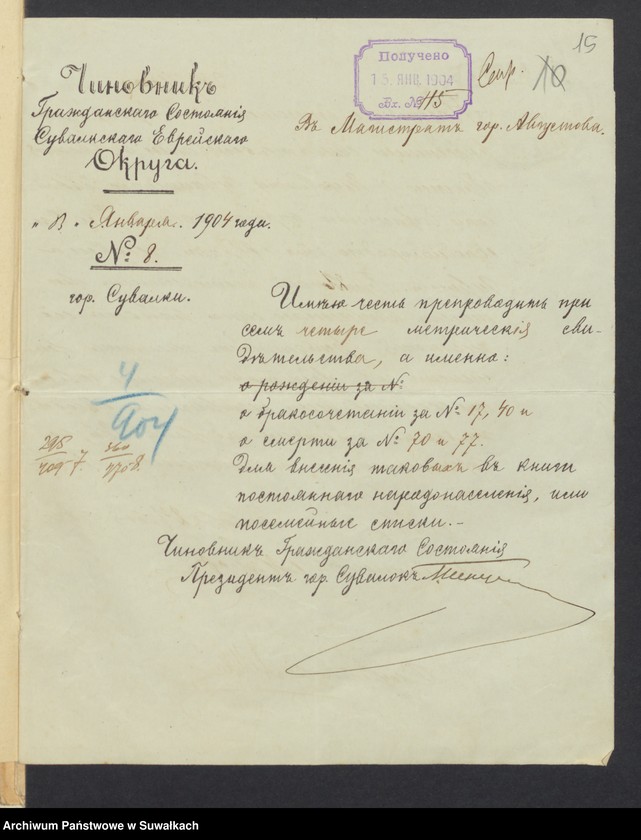 15
Получено
15 ЯНВ 1904
Вх. № 115
Чиновникъ
Гражданскаго Состоянія
Сувалкскаго Еврейскаго
Округа.
Въ Магистратъ гор. Августова.
Января. 1904 года.
№ 8.
гор. Сувалки.
Имѣю честь препроводить при
семъ четыре метрическія сви-
дѣтельства, а именно:
о рожденіи за №
о бракосочетаніи за № 17, 40 и
о смерти за № 70 и 77.
Для внесенія таковыхъ въ книги
постояннаго народонаселенія, или
посемейные списки.-
Чиновникъ Гражданскаго Состоянія
Президентъ гор. Сувалокъ
4
904
Archiwum Państwowe w Suwałkach